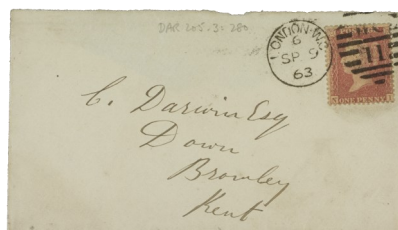 DAR 205.3: 280
LONDON·W.C
6
SP 9
63
11
ONE PENNY
C. Darwin Esq
Down
Bromley
Kent